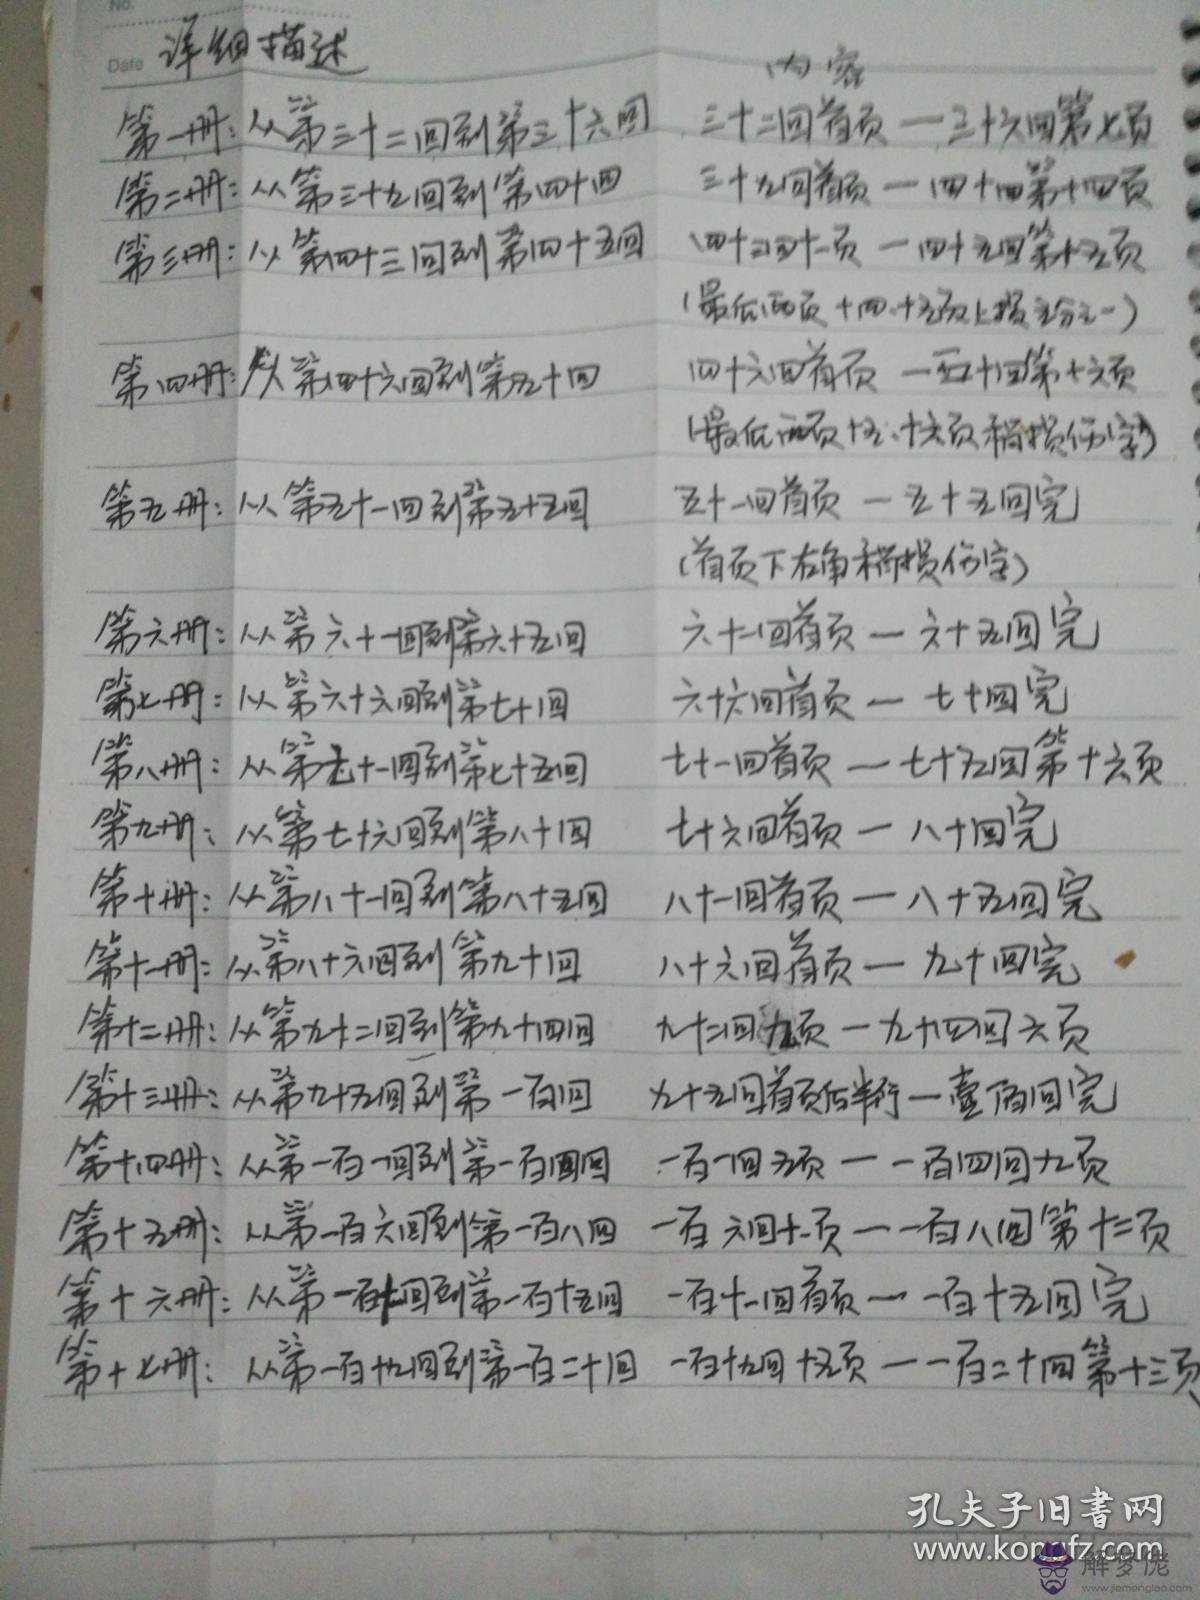 No.
Date 详细描述
内容
第一册：从第三十二回到第三十六回 三十二回首页一三十六回第七页
第二册：从第三十九回到第四十回 三十九回首页一四十回第十四页
第三册：从第四十三回到第四十五回 四十三回十一页一四十五回第十五页
（最后两页十四、十五页上损三分之一）
第四册：从第四十六回到第五十回 四十六回首页一五十回第十六页
（最后两页十五、十六页稍损伤字）
第五册：从第五十一回到第五十五回 五十一回首页一五十五回完
（首页下右角稍损伤字）
第六册：从第六十一回到第六十五回 六十一回首页一六十五回完
第七册：从第六十六回到第七十回 六十六回首页一七十回完
第八册：从第七十一回到第七十五回 七十一回首页一七十五回第十六页
第九册：从第七十六回到第八十回 七十六回首页一八十回完
第十册：从第八十一回到第八十五回 八十一回首页一八十五回完
第十一册：从第八十六回到第九十回 八十六回首页一九十回完
第十二册：从第九十二回到第九十四回 九十二回九页一九十四回六页
第十三册：从第九十五回到第一百回 九十五回首页后半行一壹佰回完
第十四册：从第一百一回到第一百四回 一百一回五页一一百四回九页
第十五册：从第一百六回到第一百八回 一百六回十一页一一百八回第十二页
第十六册：从第一百十一回到第一百十五回 一百十一回首页一一百十五回完
第十七册：从第一百十九回到第一百二十回 一百十九回十五页一一百二十回第十三页
孔夫子旧书网
www.kongfz.com
解梦佬
www.jiemenglao.com